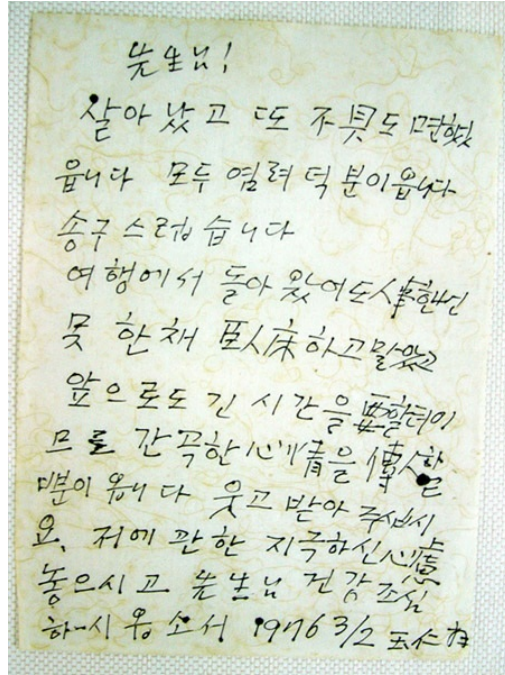 先生님!
살아 났고 또 不具도 면했
읍니다 모두 염려 덕분이옵니다
송구 스럽 습니다
여행에서 돌아 왔어도 人事한번
못 한채 臥床하고 말았고
앞으로도 긴 시간을 要할터이
므로 간곡한 心情을 傳할
뿐이 옵니다 웃고 받아 주십시
요, 저에 관한 지극하신 心慮
놓으시고 先生님 건강 조심
하시옵소서 1976 3/2